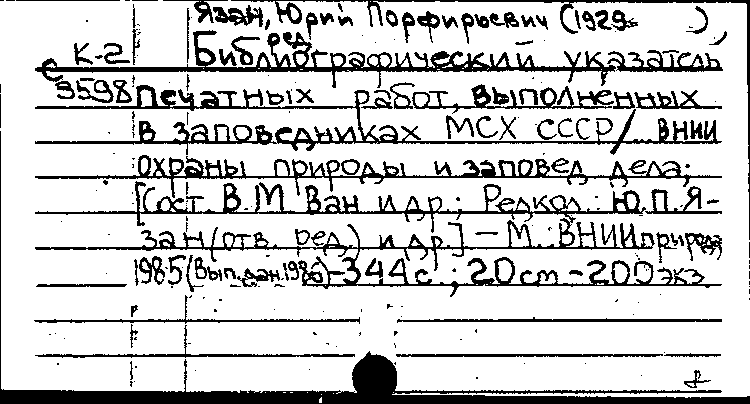 Язан, Юрий Порфирьевич (1929- ),
ред.
К-2 Библиографический указатель
С 3598 печатных работ, выполненных
в заповедниках МСХ СССР / ВНИИ
охраны природы и заповед. дела;
[Сост. В.М. Ван и др.; Редкол.: Ю.П. Я-
зан (отв. ред.) и др.] – М.: ВНИИприрода
1985 (Вып. дан. 1986) – 344 с.; 20 cm – 200 экз.